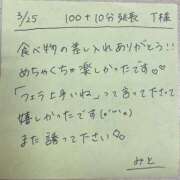 3/25 100+10分延長 T様
食べ物の差し入れありがとう!!
めちゃくちゃ楽しかったです♡♡
「フェラ上手いね」って言ってたさって
嬉しかったです(*''*)
また誘って下さい♡
みと